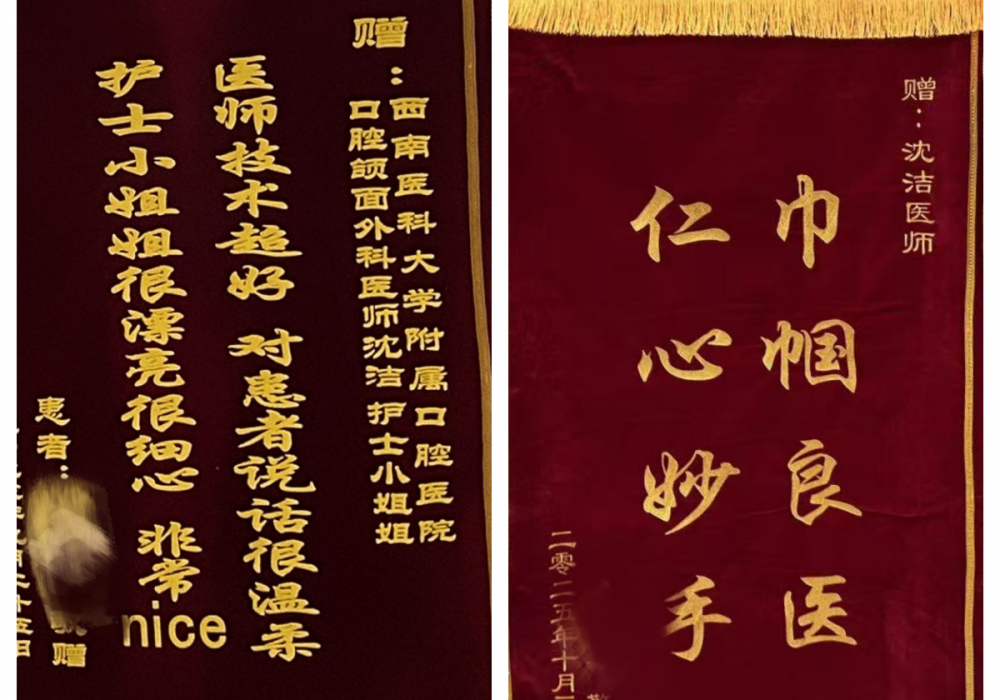 赠：西南医科大学附属口腔医院
口腔颌面外科医师沈洁护士小姐姐
医师技术超好 对患者说话很温柔
护士小姐姐很漂亮很细心 非常nice
患者：
赠
赠：沈洁医师
巾帼良医
仁心妙手
二零二五年十月